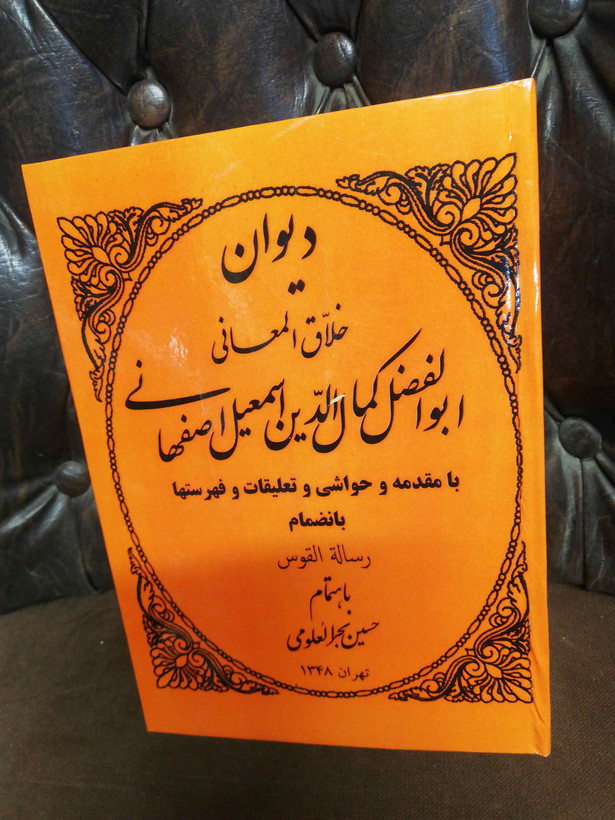 دیوان
خلاّق المعانی
ابوالفضل کمال الدّین اسمعیل اصفهانی
با مقدمه و حواشی و تعلیقات و فهرستها
بانضمام
رسالة القوس
باهتمام
حسین بحرالعلومی
تهران ۱۳۴۸